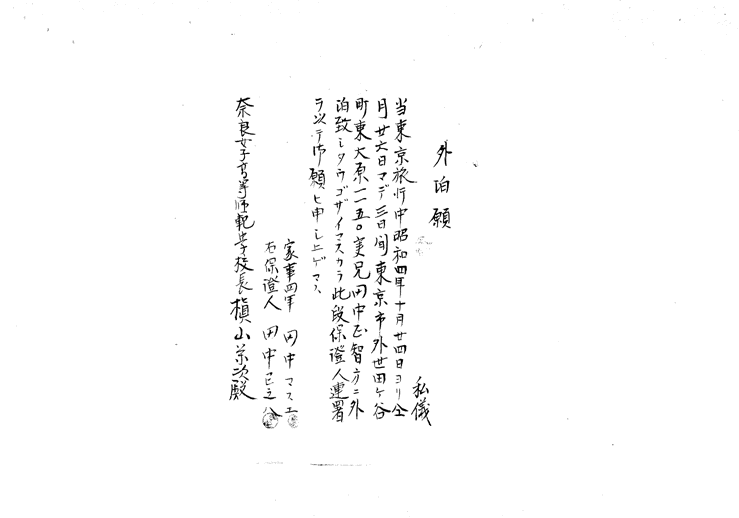 外泊願
私儀
当東京旅行中昭和四年十月廿四日ヨリ仝
月廿六日マデ三日間東京市外世田ヶ谷
町東大原一一五〇実兄田中正智方ニ外
泊致シタウゴザイマスカラ此段保證人連署
ヲ以テ御願ヒ申シ上ゲマス
家事四年 田中マスエ
右保證人 田中
奈良女子高等師範学校長 槇山栄次殿